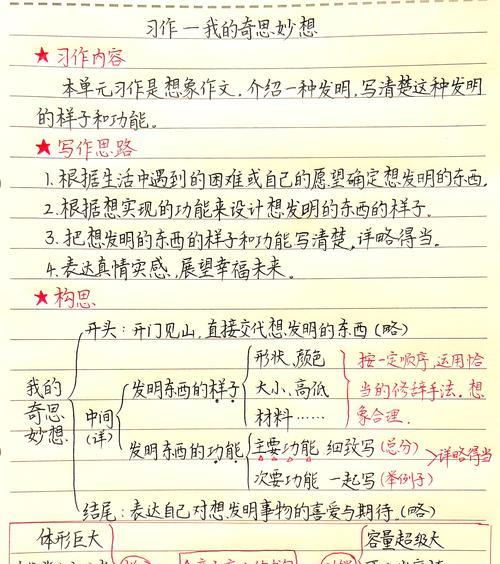 习作一我的奇思妙想
★习作内容
本单元习作是想象作文，介绍一种发明，写清楚这种发明
的样子和功能。
★写作思路
1.根据生活中遇到的困难或自己的愿望确定想发明的东西。
2.根据想实现的功能来设计想发明的东西的样子.
3.把想发明的东西的样子和功能写清楚，详略得当。
4.表达真情实感，展望幸福未来。
★构思
我的
奇思
妙想
开头：开门见山，直接交代想发明的东西（略）
中间
（详）
发明东西的样子
形状、颜色
大小、高低
材料……
按一定顺序，运用恰
当的修辞手法，想
象合理.
发明东西的功能
主要功能 细致写（总分）
次要功能 一起写（举例子）
详略得当
结尾：表达自己对想发明事物的喜爱与期待。（略）
体形巨大
容量超级大